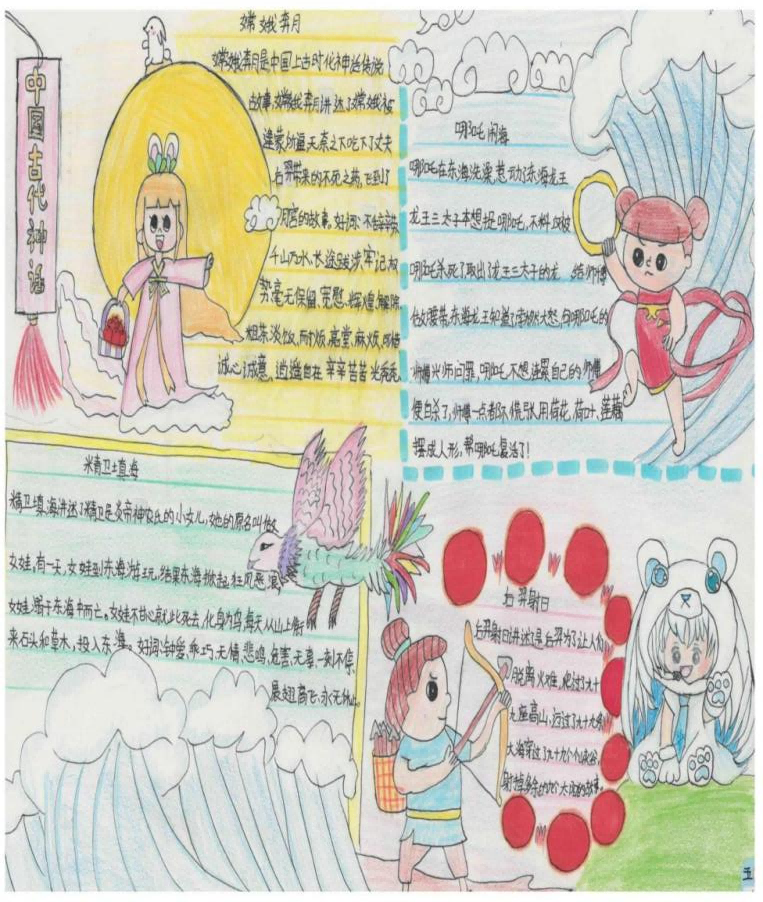 中国古代神话
嫦娥奔月
嫦娥奔月是中国上古时代神话传说
故事,嫦娥奔月讲述了嫦娥被
逢蒙所逼,无奈之下吃下了丈夫
后羿带来的不死之药,飞到了
月宫的故事。好词:不怕辛苦
千山万水、长途跋涉、牢记
毫无保留、宽慰、辉煌、解除
粗茶淡饭
诚心诚意、逍遥自在 辛辛苦苦
哪吒闹海
哪吒在东海洗澡,惹动了东海龙王
龙王三太子本想捉哪吒,不料却被
哪吒杀死了取出了龙王三太子的龙 给师傅
做腰带,东海龙王知道了 大怒,向哪吒的
师傅 师问罪,哪吒不想连累自己的师傅
便自杀了,师傅一点都不慌张,用荷花、荷叶、莲藕
摆成人形,帮哪吒复活了!
精卫填海
精卫填海讲述了精卫是炎帝神农氏的小女儿,她的原名叫做
女娃,有一天,女娃到东海游玩,结果东海掀起狂风恶浪
女娃溺于东海中而亡。女娃不甘心就此死去,化身为鸟每天从山上衔
来石头和草木,投入东海。好词:钟爱、乖巧、无情、悲鸣、危害、无辜、一刻不停、
展翅高飞、永无休止。
后羿射日
后羿射日讲述了是后羿为了让人们
脱离火难,爬过了九十
九座高山,迈过了九十九条
大河穿过了九十九个峡谷,
射掉多余的九个太阳的故事。
五